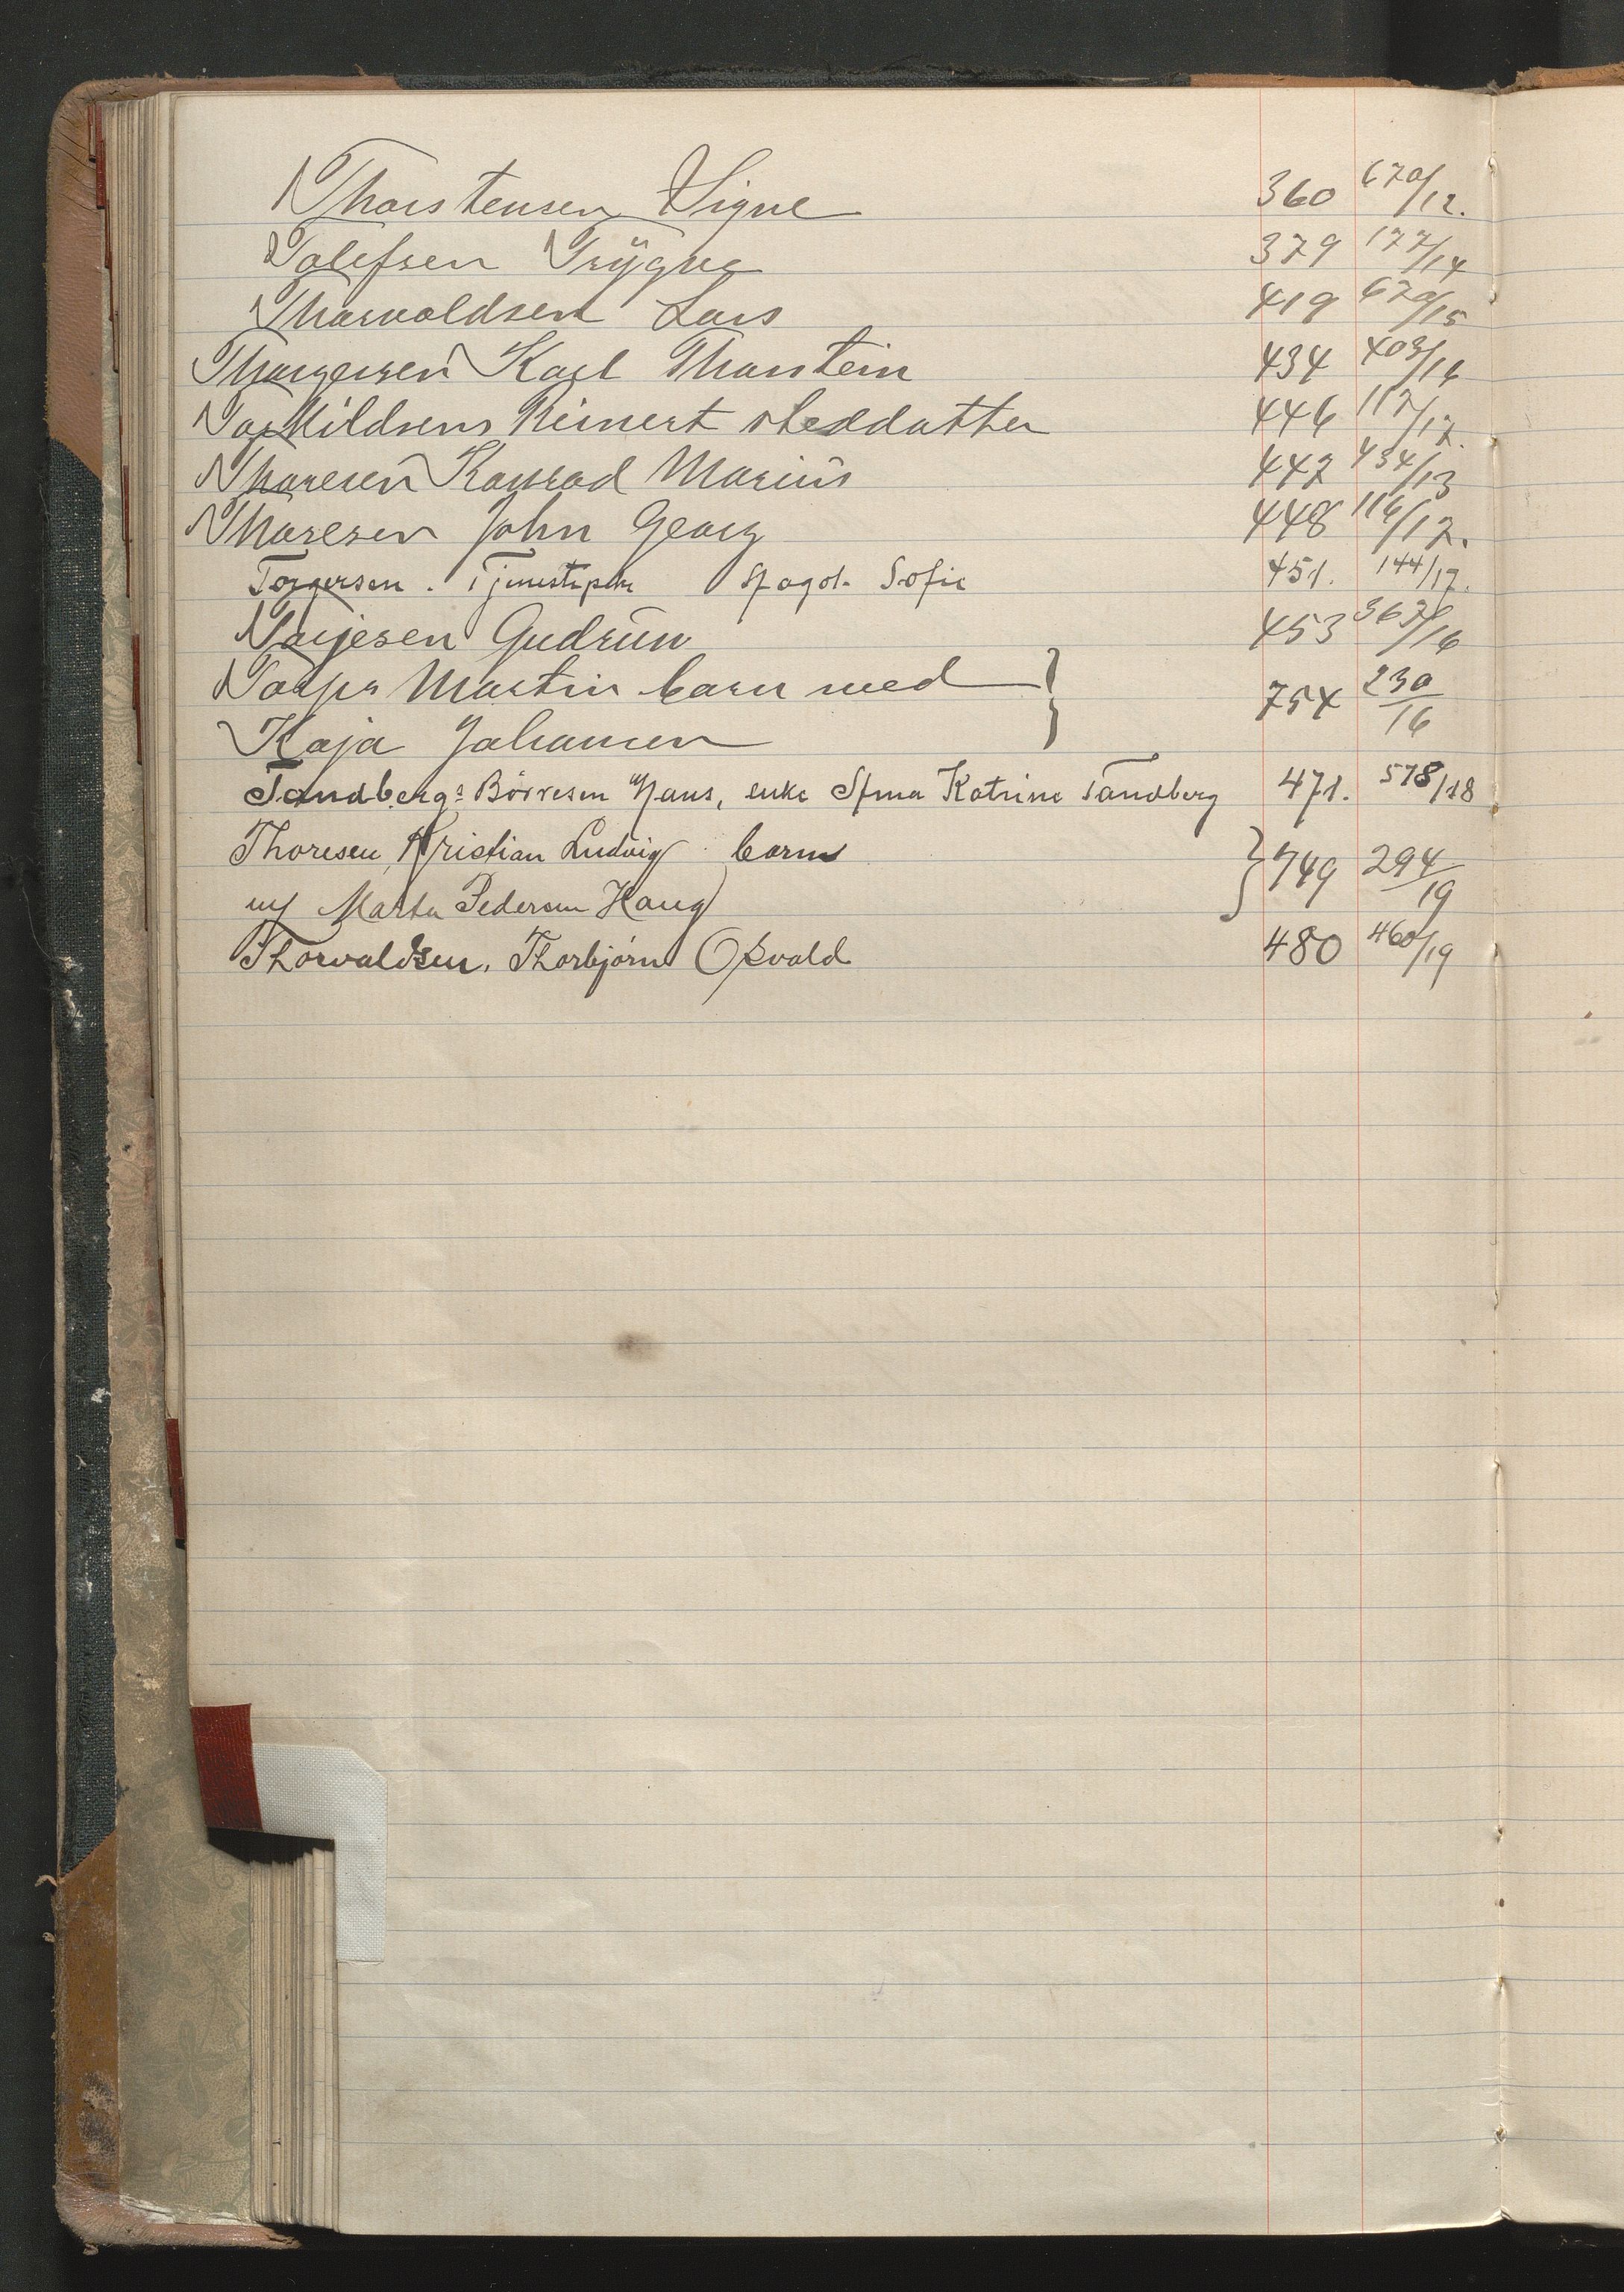 Thorstensen Signe 360 670/12.
Tolefsen Trygve 379 177/14
Thorvaldsen Lars 419 670/15
Thorgersen Karl Thorstein 434 403/16
Torkildsens Reinert steddatter 446 117/17.
Thoresen Konrad Marius 447 434/13
Thoresen John Georg 448 116/17.
Torgersen. Sofie 451. 144/17.
Torjesen Gudrun 453 367/16
Torps Martin barn med } 754 230/16
Kaja Johansen
Tandbergs Børresen Hans, enke Katrine Tandberg 471. 578/18
Thoresen, Kristian Ludvig barn } 749 294/19
m/ Marta Pedersen Haug
Thorvaldsen. Thorbjørn Osvald 480 460/19